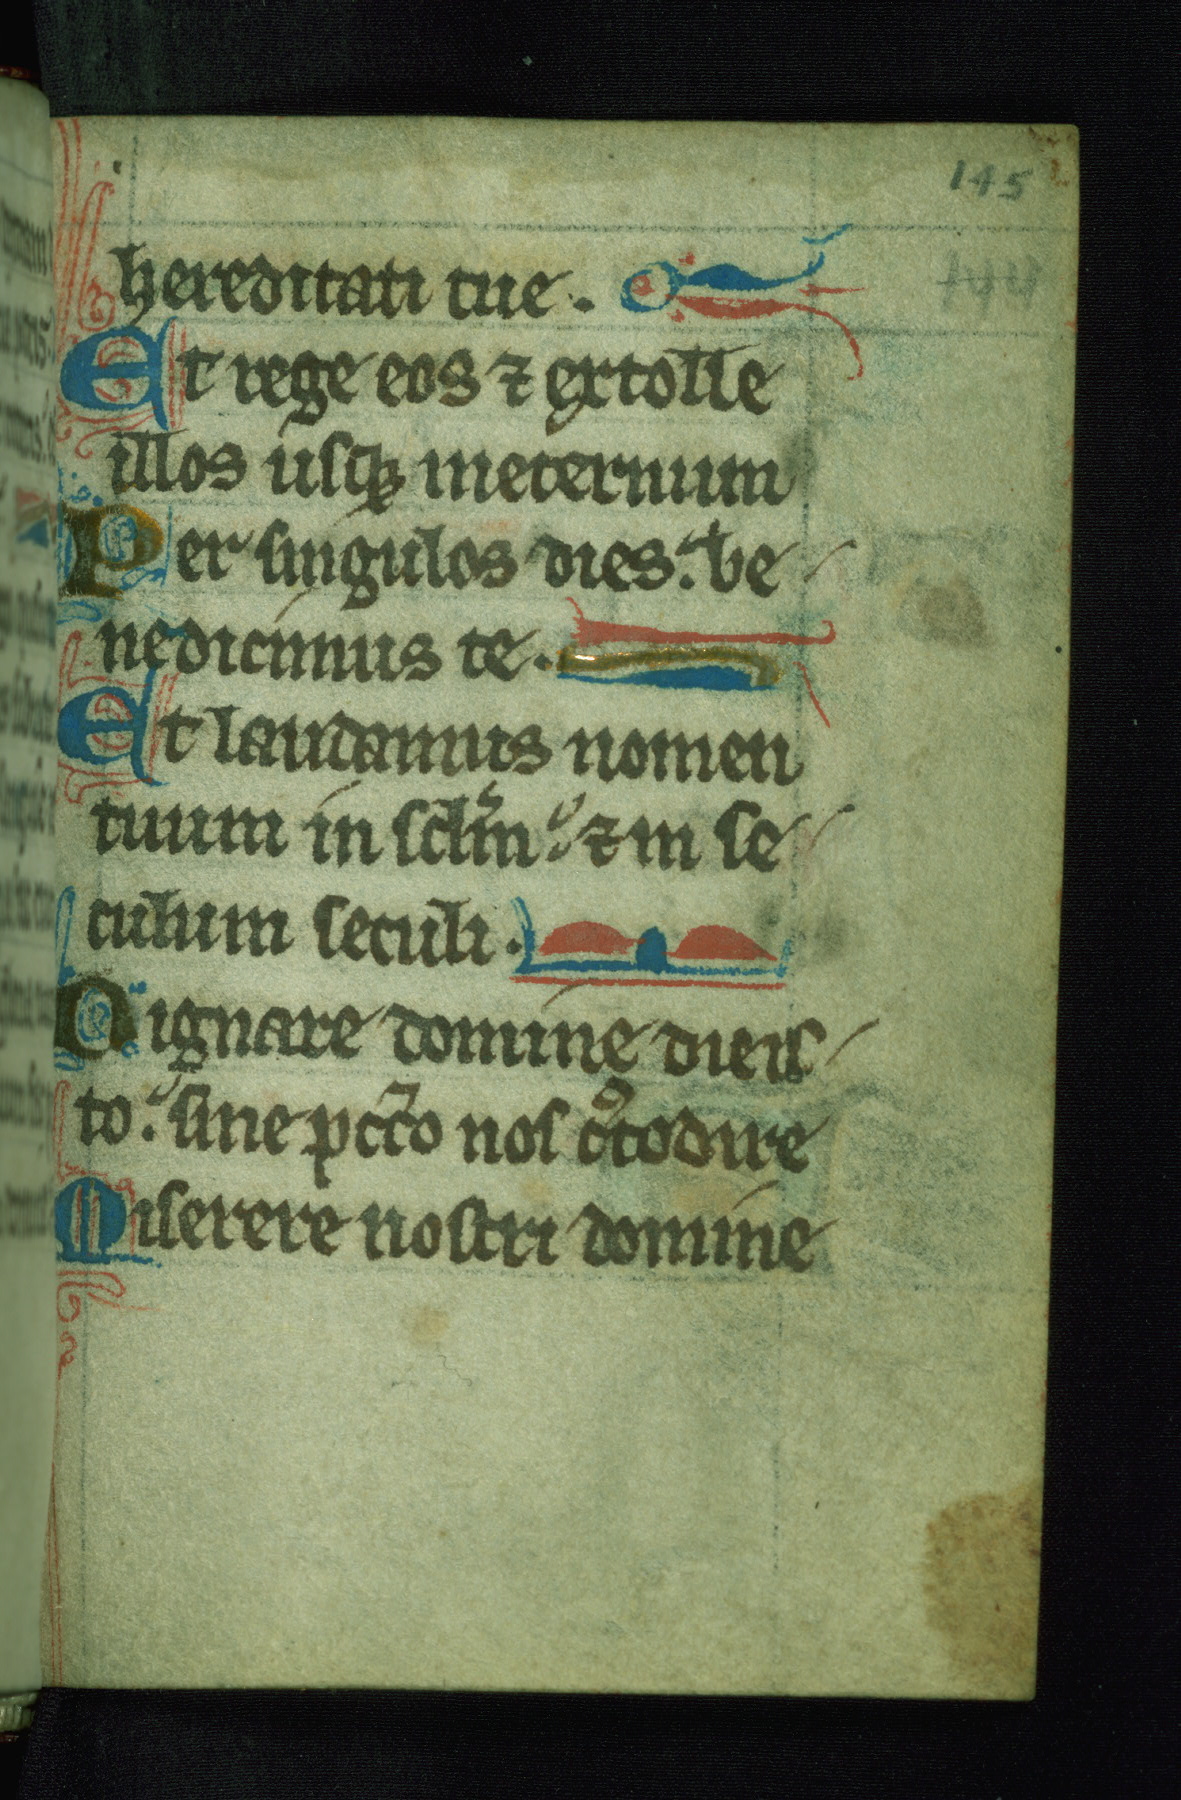 145
144
hereditati tue.
Et rege eos ⁊ extolle
illos usq; ineternum
Per singulos dies. be
nedicimus te.
Et laudamus nomen
tuum in sclm ⁊ in se
culum seculi.
Dignare domine die is
to. sine pcco nos c̉todire
Miserere nostri domine